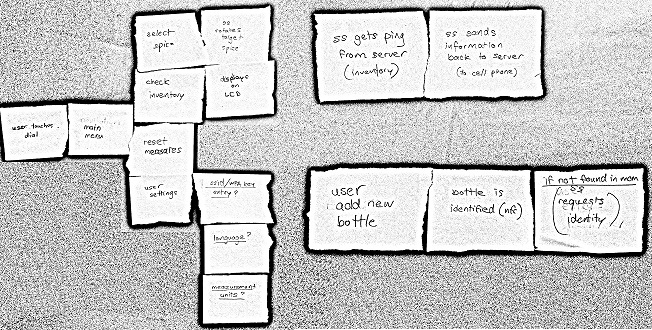 select
spice
ss
rotates
target
spice
check
inventory
displays
on
LCD
user touches
dial
main
menu
reset
measures
user
settings
ssid/wpa key
entry?
language?
measurement
units?
ss gets ping
from server
(inventory)
ss sends
information
back to server
(to cell phone)
user
add new
bottle
bottle is
identified (nfc)
if not found in mem
ss
requests
identity